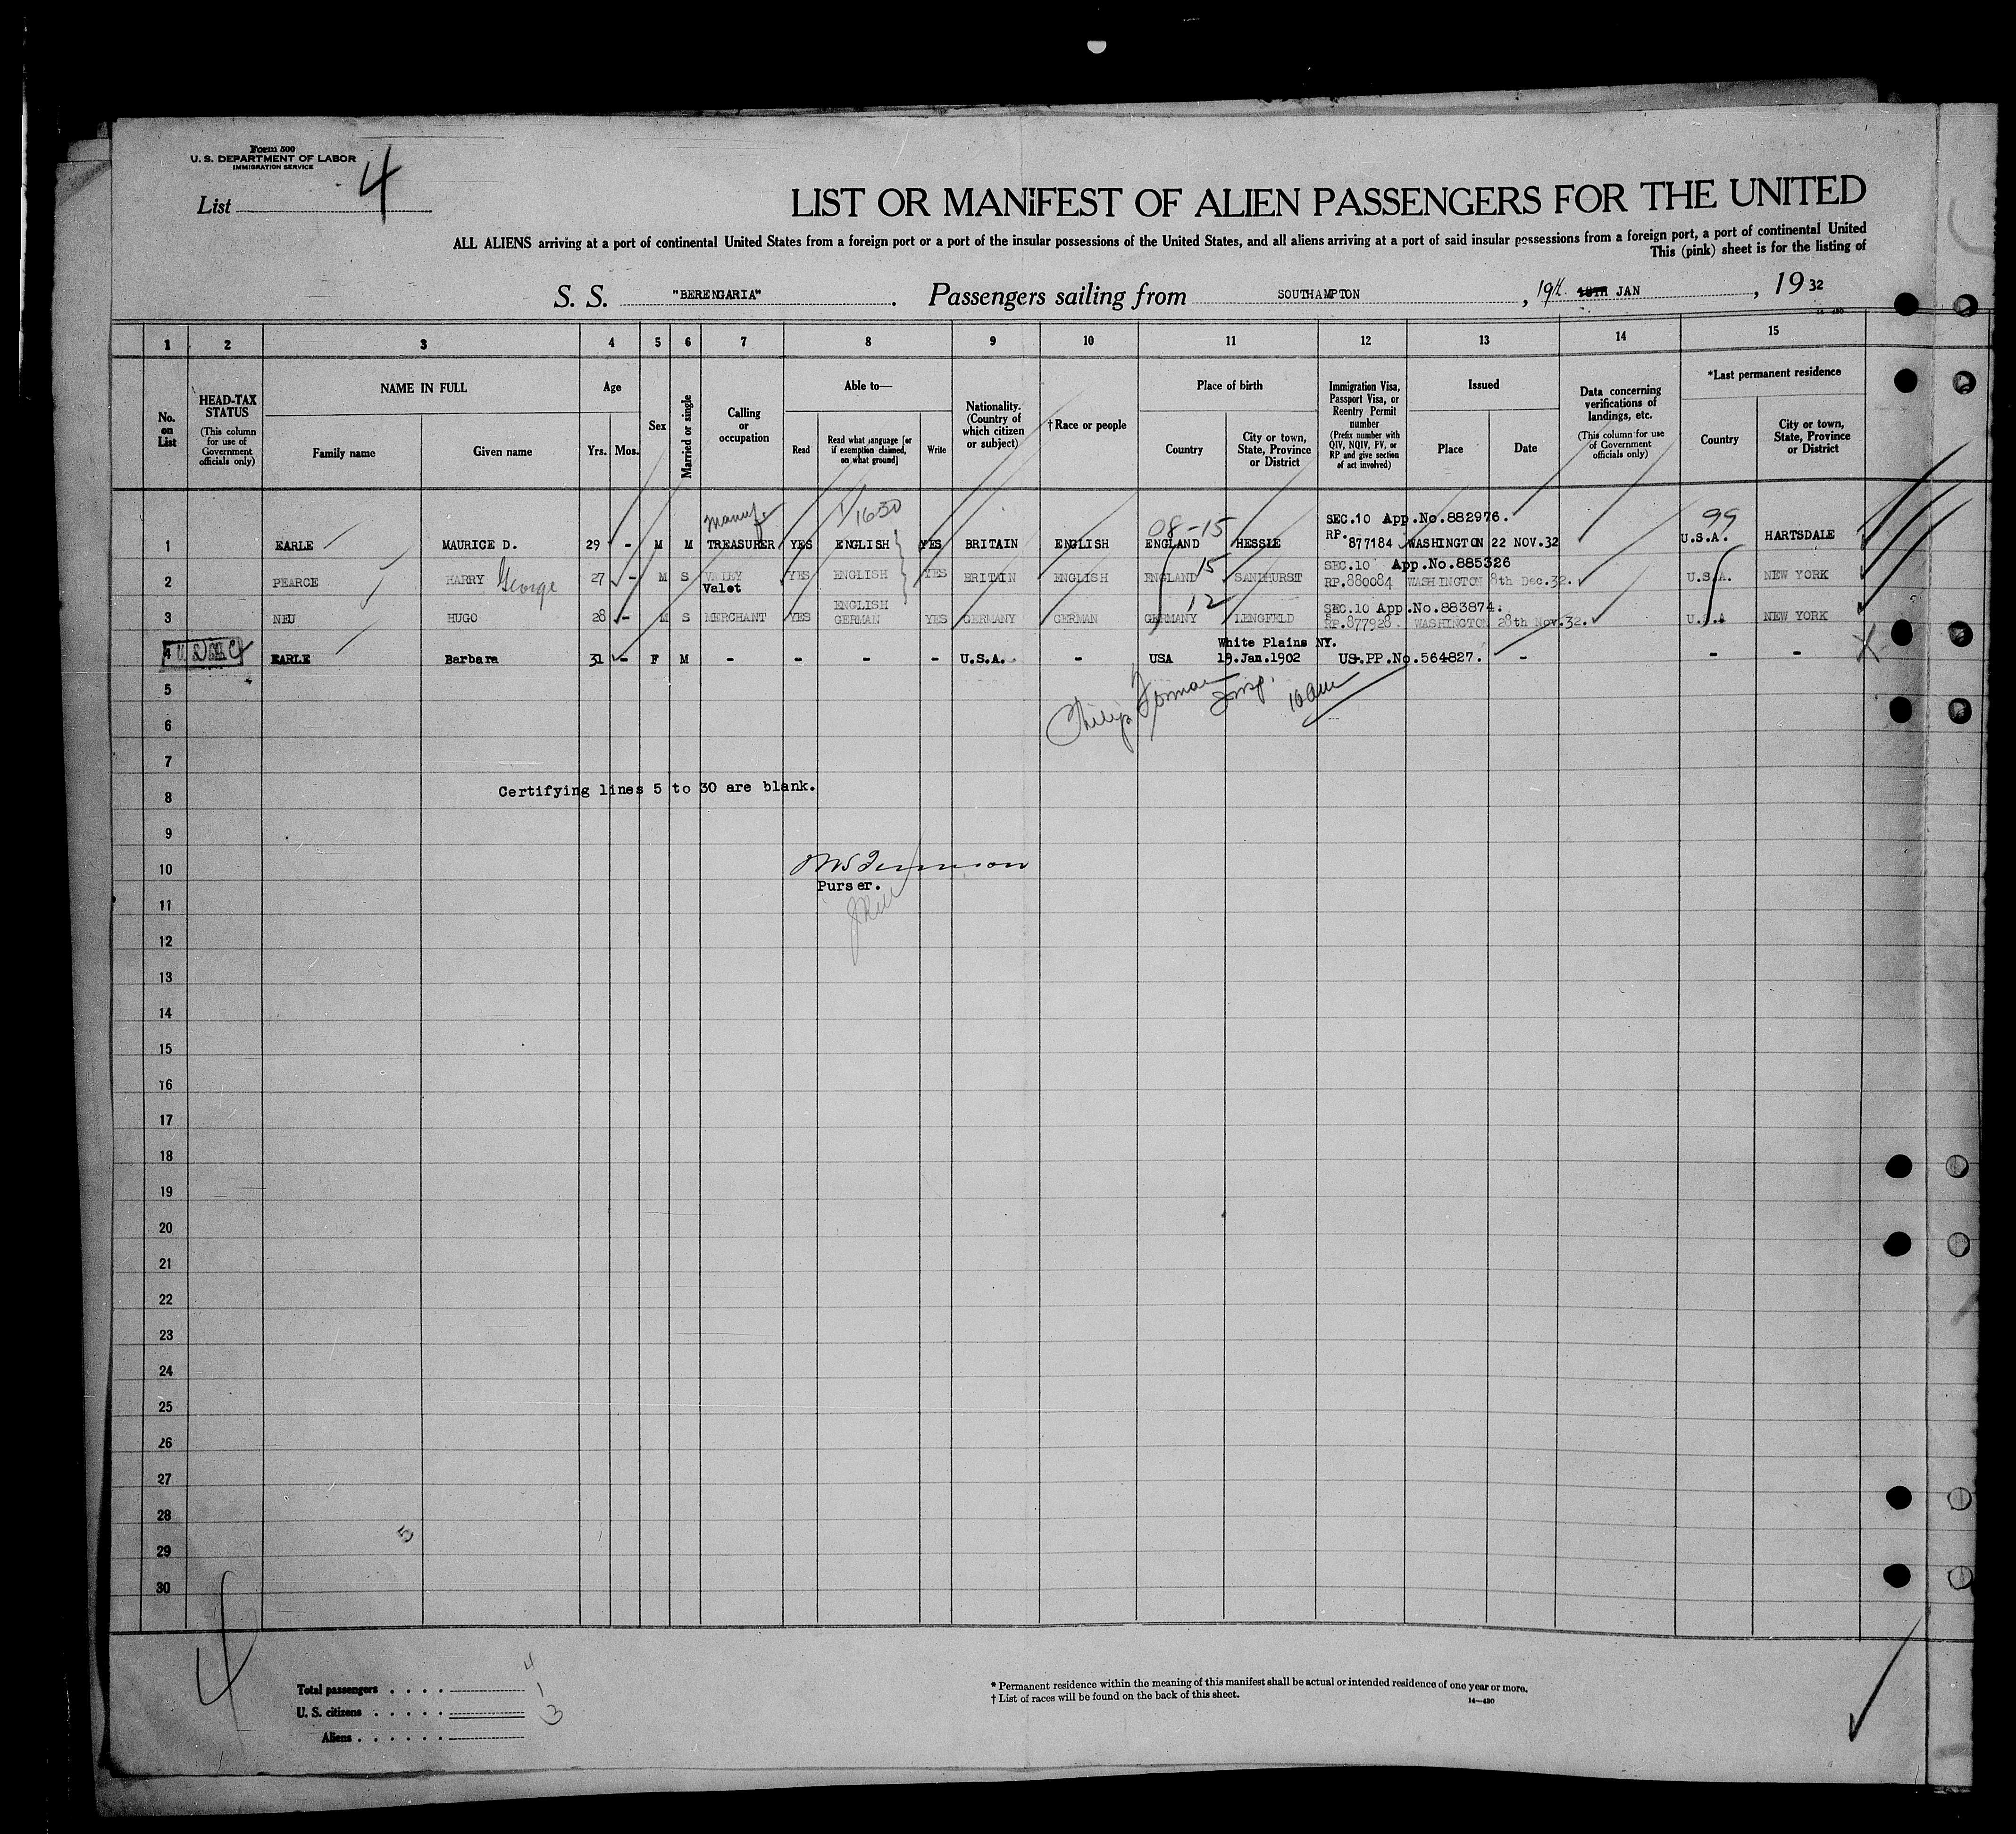 Form 500
U. S. DEPARTMENT OF LABOR
IMMIGRATION SERVICE
List 4
LIST OR MANIFEST OF ALIEN PASSENGERS FOR THE UNITED
ALL ALIENS arriving at a port of continental United States from a foreign port or a port of the insular possessions of the United States, and all aliens arriving at a port of said insular possessions from a foreign port, a port of continental United
This (pink) sheet is for the listing of
S. S. "BERENGARIA". Passengers sailing from SOUTHAMPTON, 19th JAN, 1932
1 2 3 4 5 6 7 8 9 10 11 12 13 14 15
No. on List
HEAD-TAX STATUS
(This column for use of Government officials only)
NAME IN FULL
Family name Given name
Age
Yrs. Mos.
Sex
Married or single
Calling or occupation
Able to—
Read Read what language [or if exemption claimed, on what ground] Write
Nationality. (Country of which citizen or subject)
†Race or people
Place of birth
Country City or town, State, Province or District
Immigration Visa, Passport Visa, or Reentry Permit number
(Prefix number with QIV, NQIV, PV, or RP and give section of act involved)
Issued
Place Date
Data concerning verifications of landings, etc.
(This column for use of Government officials only)
*Last permanent residence
Country City or town, State, Province or District
manuf. 1/1630 08-15 SEC.10 App.No.882976. 99
1 EARLE MAURICE D. 29 - M M TREASURER YES ENGLISH YES BRITAIN ENGLISH ENGLAND HESSLE RP. 877184 WASHINGTON 22 NOV.32 U.S.A. HARTSDALE
15 SEC.10 App.No.885326
2 PEARCE HARRY George 27 - M S Valet YES ENGLISH YES BRITAIN ENGLISH ENGLAND SANDHURST RP.880084 WASHINGTON 8th Dec.32. U.S.A. NEW YORK
ENGLISH 12 SEC.10 App.No.883874.
3 NEU HUGO 28 - M S MERCHANT YES GERMAN YES GERMANY GERMAN GERMANY LENGFELD RP.877928. WASHINGTON 28th Nov.32. U.S.A NEW YORK
White Plains NY.
4 EARLE Barbara 31 - F M - - - - U.S.A. - USA 19.Jan.1902 US.PP.No.564827. - - -
5
6
7
8
Certifying lines 5 to 30 are blank.
9
10
Purser.
11
12
13
14
15
16
17
18
19
20
21
22
23
24
25
26
27
28
5
29
30
4
Total passengers 4
U. S. citizens 1
Aliens 3
* Permanent residence within the meaning of this manifest shall be actual or intended residence of one year or more.
† List of races will be found on the back of this sheet.
14—480